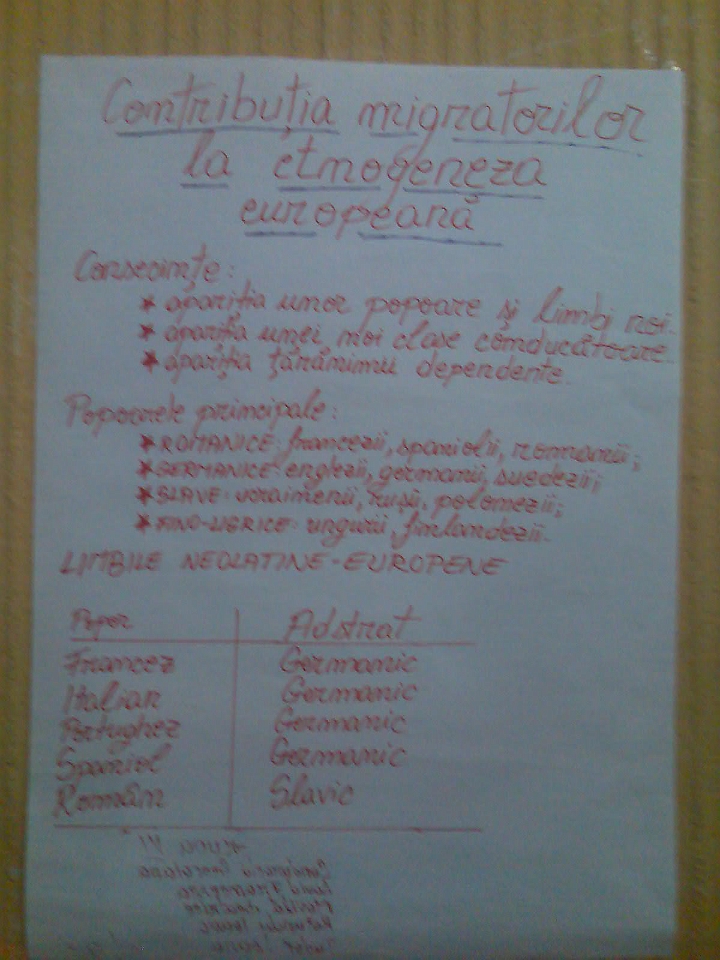 Contribuția migratorilor
la etnogeneza
europeană
Consecințe:
* apariția unor popoare și limbi noi.
* apariția unei noi clase conducătoare.
* apariția țărănimii dependente.
Popoarele principale:
* ROMANICE: francezii, spaniolii, romanii;
* GERMANICE: englezii, germanii, suedezii;
* SLAVE: ucrainenii, rușii, polonezii;
* FINO-UGRICE: ungurii, finlandezii.
LIMBILE NEOLATINE-EUROPENE
Popor Adstrat
Francez Germanic
Italian Germanic
Portughez Germanic
Spaniol Germanic
Român Slavic